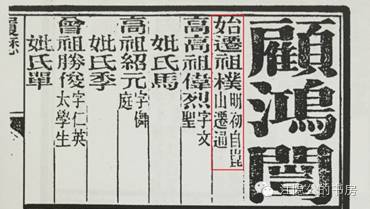 顧鴻
始遷祖樸明初自崑山遷通
高高祖偉烈字文聖
妣氏馬
高祖紹元字庭
妣氏季
曾祖勝俊字仁英太學生
妣氏單
的书房